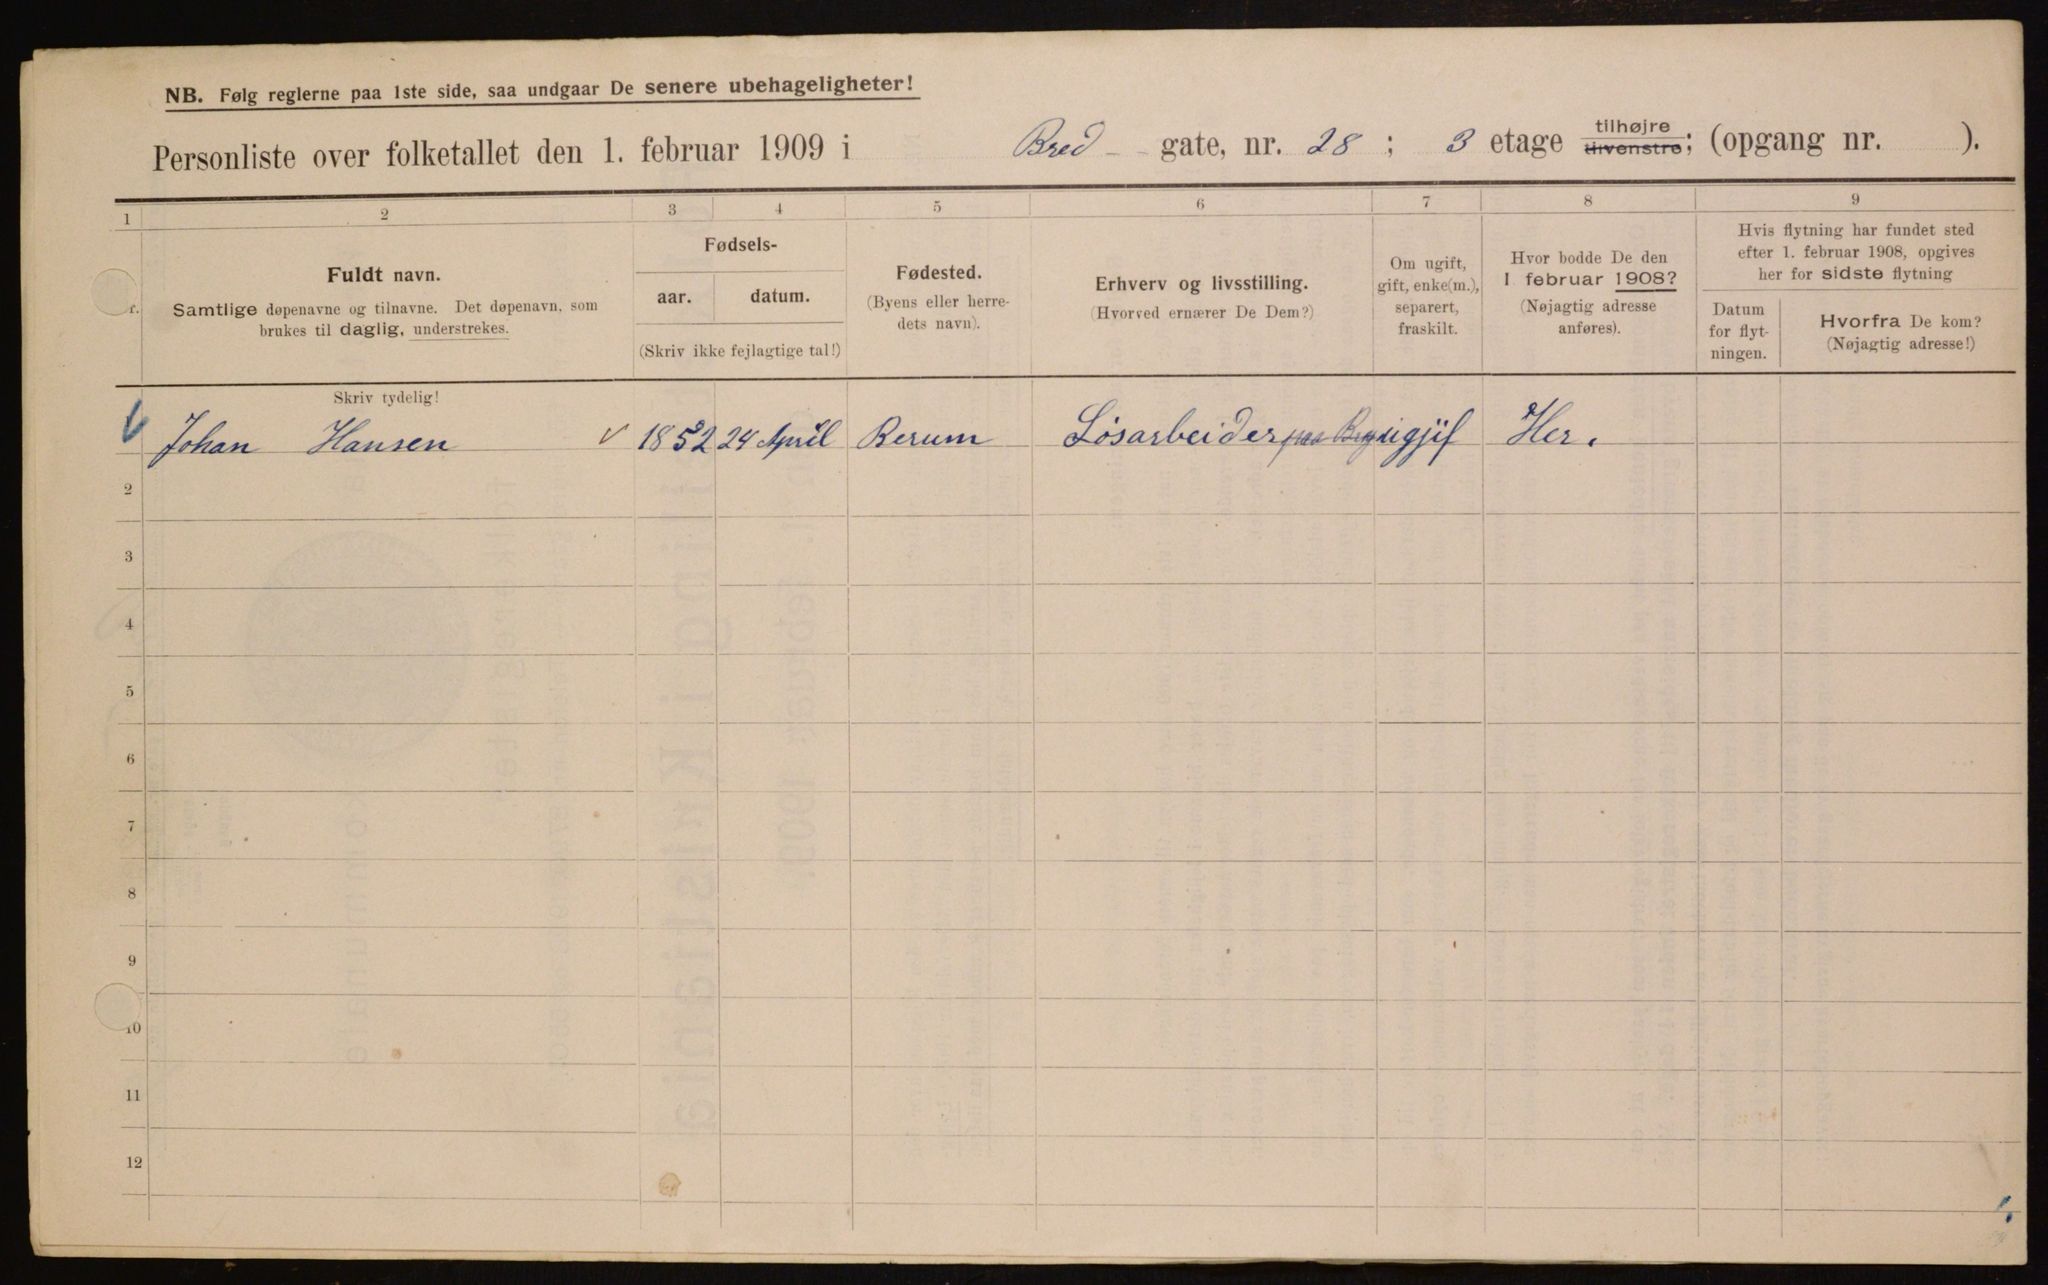 NB. Følg reglerne paa 1ste side, saa undgaar De senere ubehageligheter!
Personliste over folketallet den 1. februar 1909 i Bred - gate, nr. 28 ; 3 etage tilhøjre tilvenstre; (opgang nr. ).
1 2 3 4 5 6 7 8 9
Fuldt navn.
Samtlige døpenavne og tilnavne. Det døpenavn, som
brukes til daglig, understrekes.
Fødsels-
aar. datum.
(Skriv ikke fejlagtige tal!)
Fødested.
(Byens eller herre-
dets navn).
Erhverv og livsstilling.
(Hvorved ernærer De Dem?)
Om ugift,
gift, enke(m.),
separert,
fraskilt.
Hvor bodde De den
1. februar 1908?
(Nøjagtig adresse
anføres).
Hvis flytning har fundet sted
efter 1. februar 1908, opgives
her for sidste flytning
Datum
for flyt-
ningen.
Hvorfra De kom?
(Nøjagtig adresse!)
Skriv tydelig!
Johan Hansen 1852 24 April Berum Løsarbeider paa ugjif Her.
2
3
4
5
6
7
8
9
10
11
12